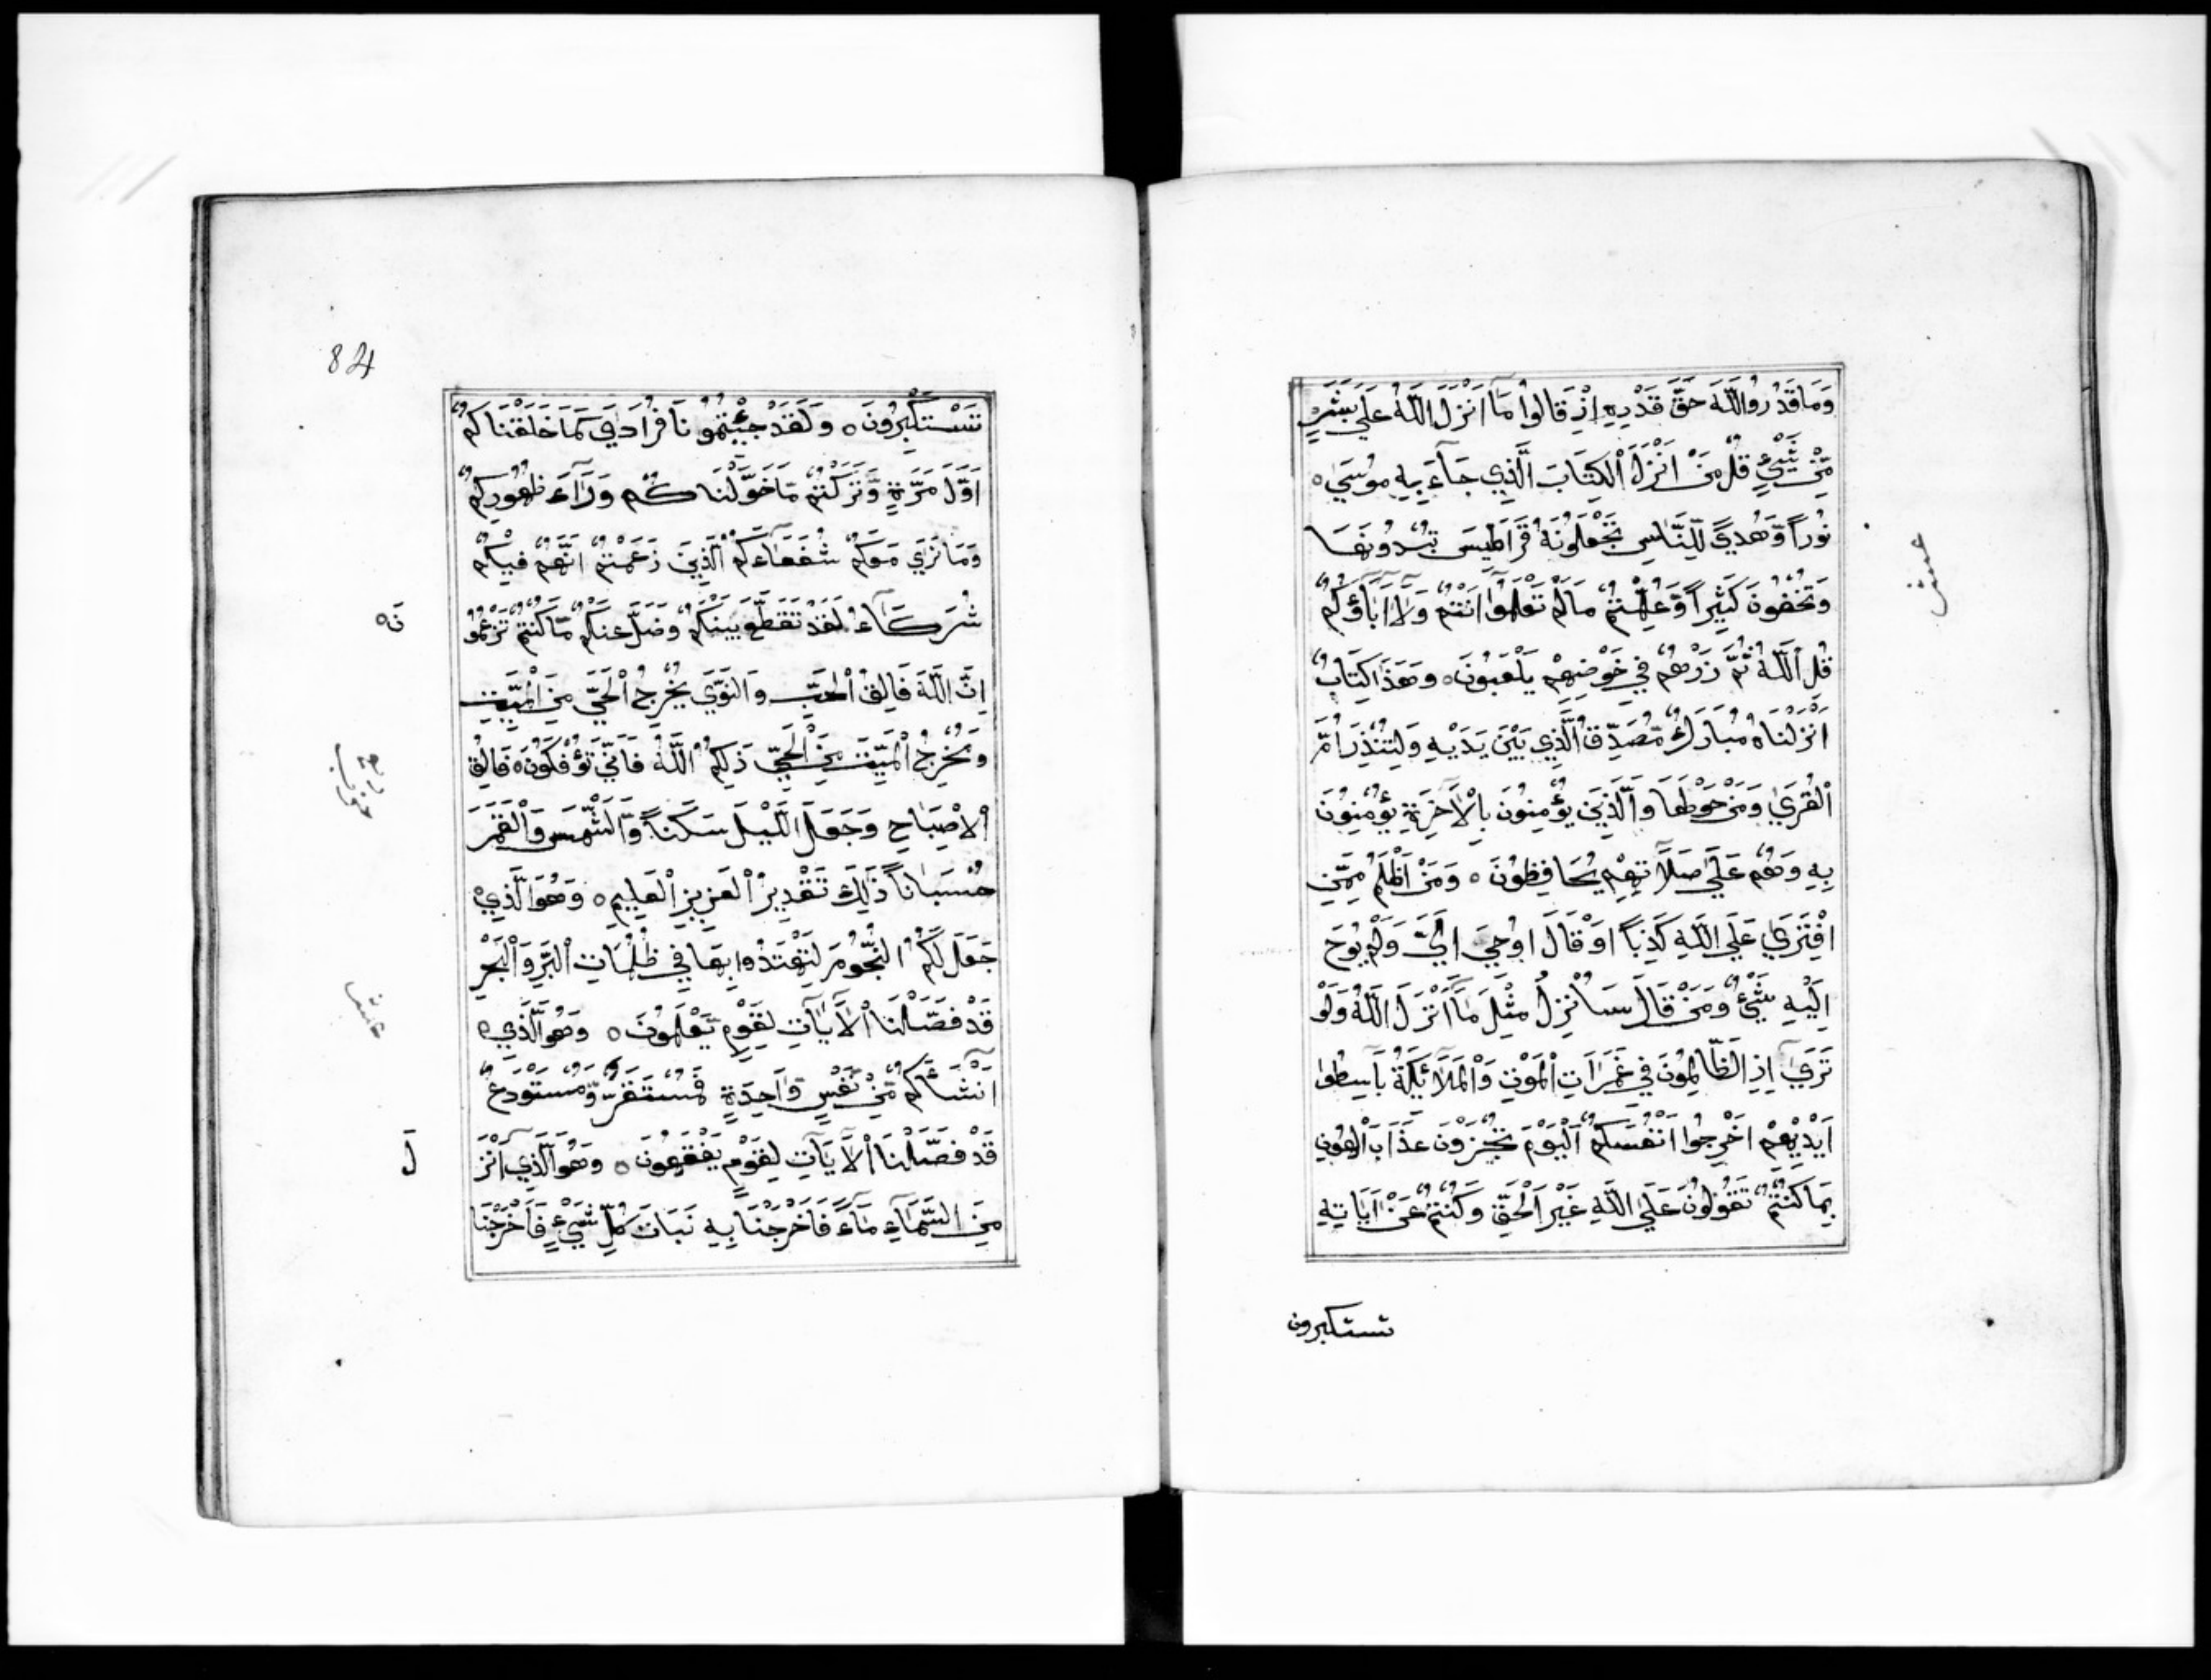 وَمَا قَدَرُوا اللَّهَ حَقَّ قَدْرِهِ إِذْ قَالُوا مَا أَنْزَلَ اللَّهُ عَلَى بَشَرٍ
مِّنْ شَيْءٍ قُلْ مَنْ أَنْزَلَ الْكِتَابَ الَّذِي جَاءَ بِهِ مُوسَى ه
نُوراً وَّهُدىً لِّلنَّاسِ تَجْعَلُونَهُ قَرَاطِيسَ تُبْدُونَهَا
وَتُخْفُونَ كَثِيراً وَّعُلِّمْتُمْ مَا لَمْ تَعْلَمُوا أَنْتُمْ وَلَا آبَاؤُكُمْ
قُلِ اللَّهُ ثُمَّ ذَرْهُمْ فِي خَوْضِهِمْ يَلْعَبُونَ ه وَهَذَا كِتَابٌ
أَنْزَلْنَاهُ مُبَارَكٌ مُّصَدِّقُ الَّذِي بَيْنَ يَدَيْهِ وَلِتُنْذِرَ أُمَّ
الْقُرَى وَمَنْ حَوْلَهَا وَالَّذِينَ يُؤْمِنُونَ بِالْآخِرَةِ يُؤْمِنُونَ
بِهِ وَهُمْ عَلَى صَلَاتِهِمْ يُحَافِظُونَ ه وَمَنْ أَظْلَمُ مِمَّنِ
افْتَرَى عَلَى اللَّهِ كَذِباً أَوْ قَالَ أُوحِيَ إِلَيَّ وَلَمْ يُوحَ
إِلَيْهِ شَيْءٌ وَمَنْ قَالَ سَأُنْزِلُ مِثْلَ مَا أَنْزَلَ اللَّهُ وَلَوْ
تَرَى إِذِ الظَّالِمُونَ فِي غَمَرَاتِ الْمَوْتِ وَالْمَلَائِكَةُ بَاسِطُوا
أَيْدِيهِمْ أَخْرِجُوا أَنْفُسَكُمُ الْيَوْمَ تُجْزَوْنَ عَذَابَ الْهُونِ
بِمَا كُنْتُمْ تَقُولُونَ عَلَى اللَّهِ غَيْرَ الْحَقِّ وَكُنْتُمْ عَنْ آيَاتِهِ
تستكبرون
عشر
84
تَسْتَكْبِرُونَ ه وَلَقَدْ جِئْتُمُونَا فُرَادَى كَمَا خَلَقْنَاكُمْ
أَوَّلَ مَرَّةٍ وَّتَرَكْتُمْ مَا خَوَّلْنَاكُمْ وَرَاءَ ظُهُورِكُمْ
وَمَا نَرَى مَعَكُمْ شُفَعَاءَكُمُ الَّذِينَ زَعَمْتُمْ أَنَّهُمْ فِيكُمْ
شُرَكَاءُ لَقَدْ تَقَطَّعَ بَيْنَكُمْ وَضَلَّ عَنْكُمْ مَّا كُنْتُمْ تَزْعُمُو
نَ ه
إِنَّ اللَّهَ فَالِقُ الْحَبِّ وَالنَّوَى يُخْرِجُ الْحَيَّ مِنَ الْمَيِّتِ
وَمُخْرِجُ الْمَيِّتِ مِنَ الْحَيِّ ذَلِكُمُ اللَّهُ فَأَنَّى تُؤْفَكُونَ ه فَالِقُ
الْإِصْبَاحِ وَجَعَلَ اللَّيْلَ سَكَناً وَّالشَّمْسَ وَالْقَمَرَ
حُسْبَاناً ذَلِكَ تَقْدِيرُ الْعَزِيزِ الْعَلِيمِ ه وَهُوَ الَّذِي
جَعَلَ لَكُمُ النُّجُومَ لِتَهْتَدُوا بِهَا فِي ظُلُمَاتِ الْبَرِّ وَالْبَحْرِ
قَدْ فَصَّلْنَا الْآيَاتِ لِقَوْمٍ يَّعْلَمُونَ ه وَهُوَ الَّذِي
أَنْشَأَكُمْ مِّنْ نَّفْسٍ وَاحِدَةٍ فَمُسْتَقَرٌّ وَّمُسْتَوْدَعٌ
قَدْ فَصَّلْنَا الْآيَاتِ لِقَوْمٍ يَفْقَهُونَ ه وَهُوَ الَّذِي أَنْزَ
لَ
مِنَ السَّمَاءِ مَاءً فَأَخْرَجْنَا بِهِ نَبَاتَ كُلِّ شَيْءٍ فَأَخْرَجْنَا
عشر